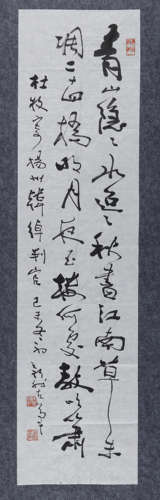 青山隐〻水迢〻秋尽江南草未
凋二十四橋明月夜玉人何處教吹簫
杜牧寄揚州韓綽判官 己未冬初